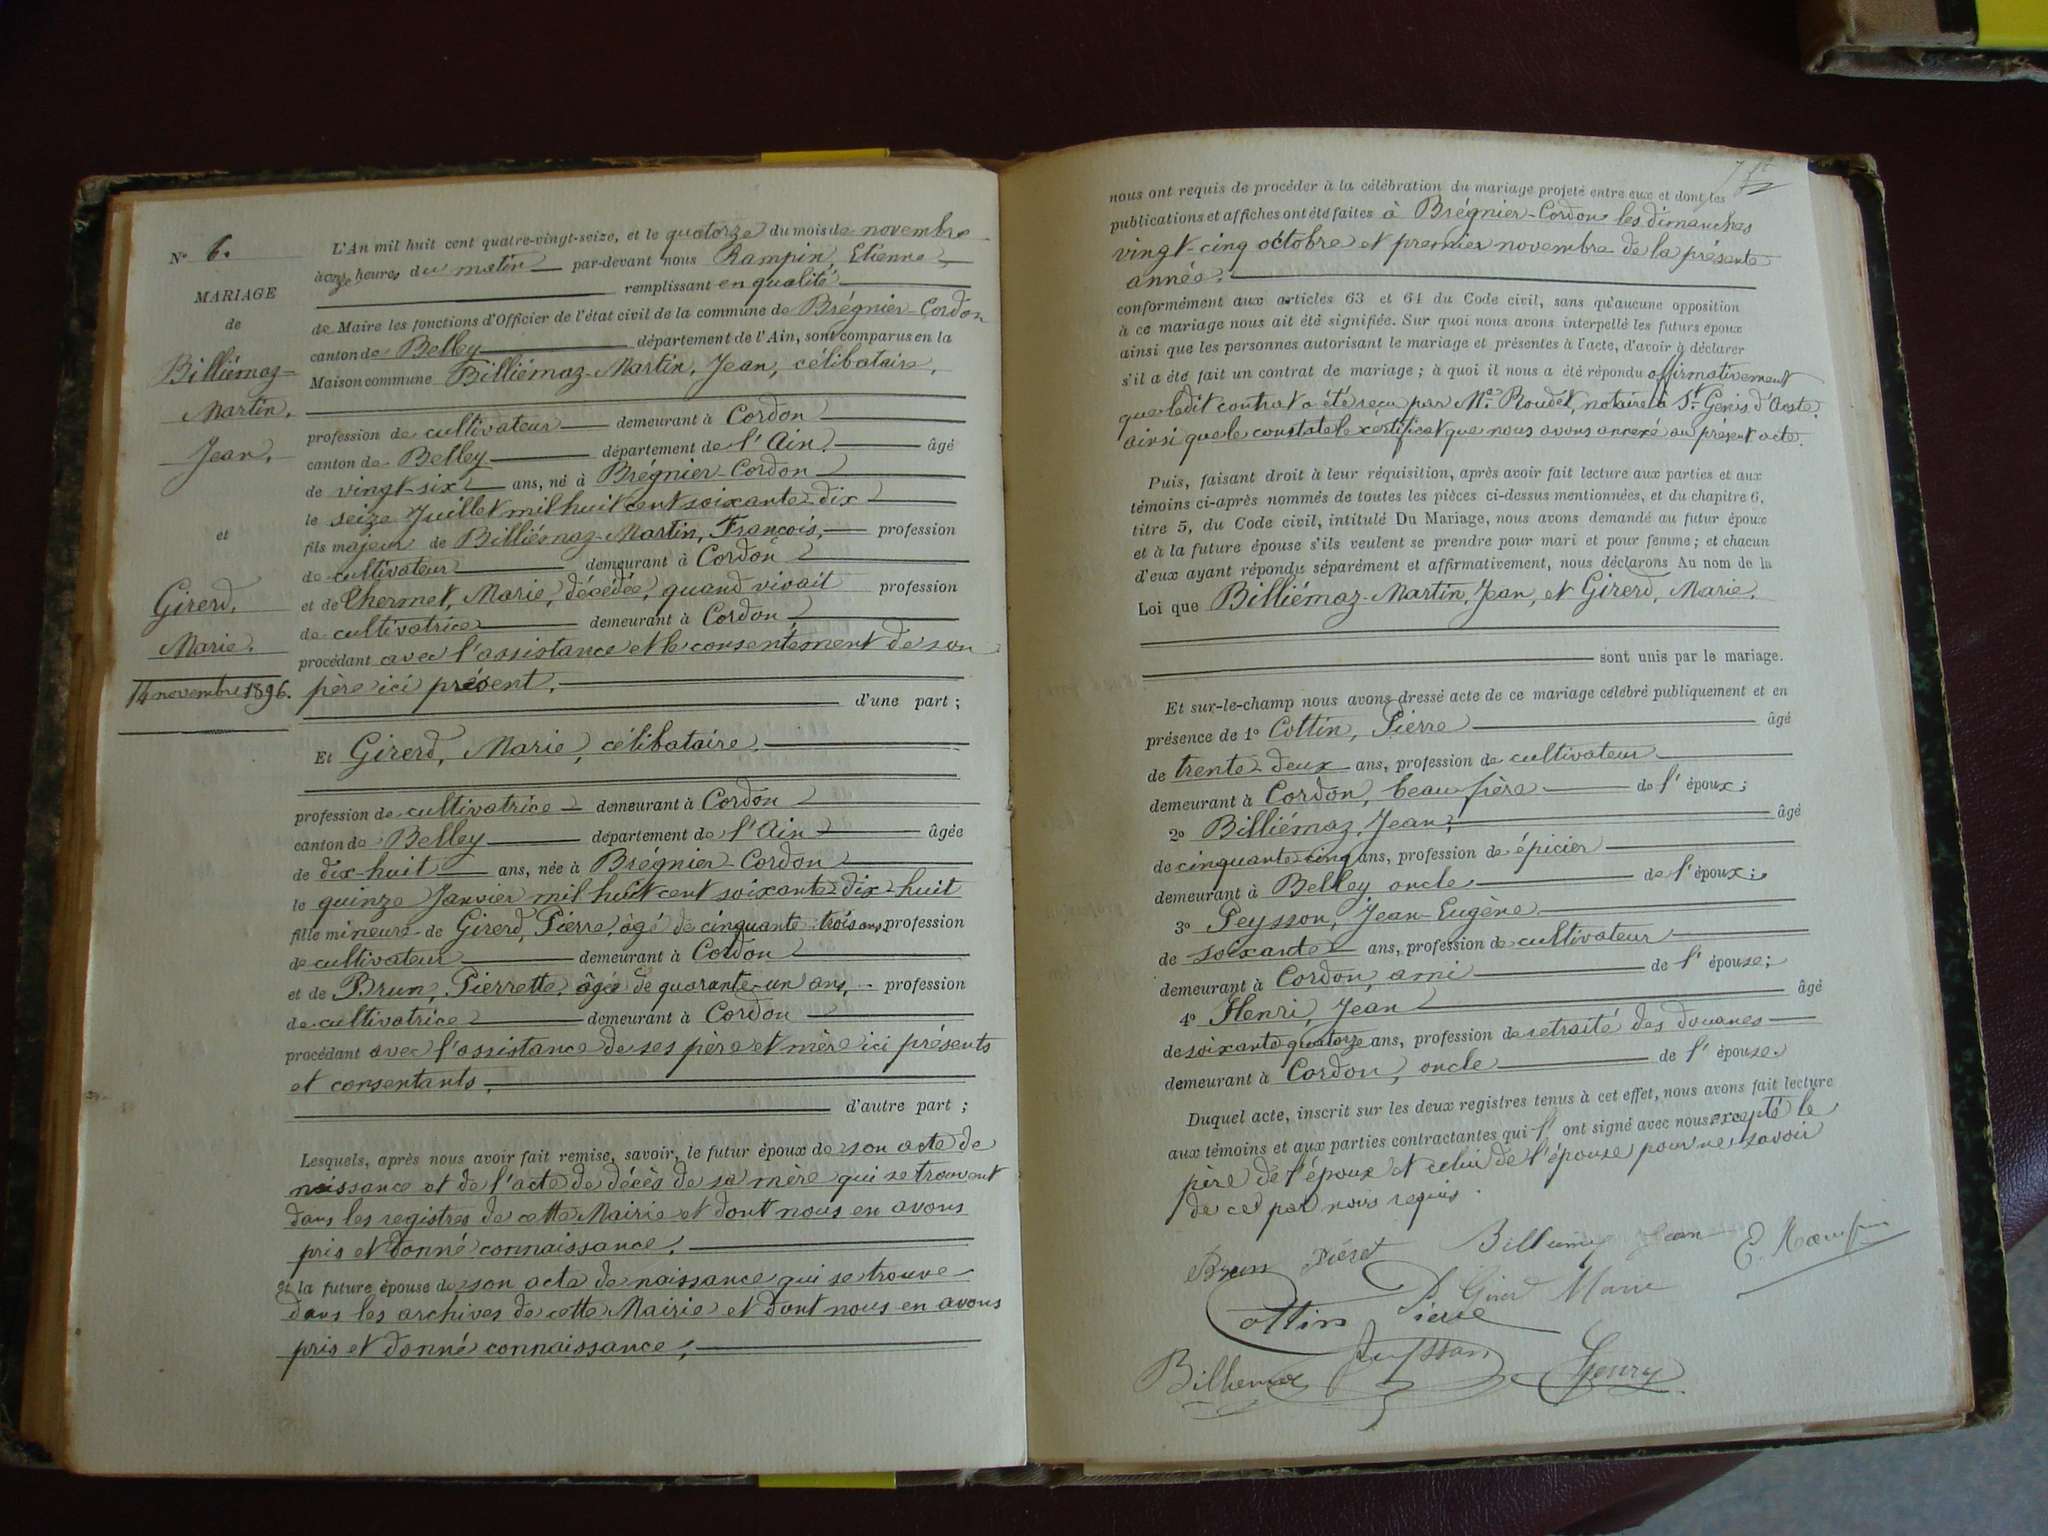 N° 6.
MARIAGE
de
Billiémaz-
Martin,
Jean,
et
Girerd,
Marie.
14 novembre 1896.
L'An mil huit cent quatre-vingt-seize, et le quatorze du mois de novembre
à onze heures du matin par-devant nous Rampin, Etienne,
remplissant en qualité
de Maire les fonctions d'Officier de l'état civil de la commune de Brégnier-Cordon
canton de Belley département de l'Ain, sont comparus en la
Maison commune Billiémaz-Martin, Jean, célibataire,
profession de cultivateur demeurant à Cordon
canton de Belley département de l'Ain âgé
de vingt-six ans, né à Brégnier-Cordon
le seize Juillet mil huit cent soixante-dix
fils majeur de Billiémaz-Martin, François, profession
de cultivateur demeurant à Cordon
et de Chermet, Marie, décédée, quand vivait profession
de cultivatrice demeurant à Cordon
procédant avec l'assistance et le consentement de son
père ici présent,
d'une part ;
Et Girerd, Marie, célibataire,
profession de cultivatrice demeurant à Cordon
canton de Belley département de l'Ain âgée
de dix-huit ans, née à Brégnier-Cordon
le quinze Janvier mil huit cent soixante-dix-huit
fille mineure de Girerd, Pierre, âgé de cinquante trois ans, profession
de cultivateur demeurant à Cordon
et de Brun, Pierrette, âgée de quarante-un ans, profession
de cultivatrice demeurant à Cordon
procédant avec l'assistance de ses père et mère ici présents
et consentants,
d'autre part ;
Lesquels, après nous avoir fait remise, savoir, le futur époux de son acte de
naissance et de l'acte de décès de sa mère qui se trouvent
dans les registres de cette Mairie et dont nous en avons
pris et donné connaissance,
et la future épouse de son acte de naissance qui se trouve
dans les archives de cette Mairie et dont nous en avons
pris et donné connaissance,
nous ont requis de procéder à la célébration du mariage projeté entre eux et dont les
publications et affiches ont été faites à Brégnier-Cordon les dimanches
vingt-cinq octobre et premier novembre de la présente
année.
conformément aux articles 63 et 64 du Code civil, sans qu'aucune opposition
à ce mariage nous ait été signifiée. Sur quoi nous avons interpellé les futurs époux
ainsi que les personnes autorisant le mariage et présentes à l'acte, d'avoir à déclarer
s'il a été fait un contrat de mariage ; à quoi il nous a été répondu affirmativement
que ledit contrat a été reçu par Me Roudet, notaire à St Genis d'Aoste,
ainsi que le constate le certificat que nous avons annexé au présent acte.
Puis, faisant droit à leur réquisition, après avoir fait lecture aux parties et aux
témoins ci-après nommés de toutes les pièces ci-dessus mentionnées, et du chapitre 6,
titre 5, du Code civil, intitulé Du Mariage, nous avons demandé au futur époux
et à la future épouse s'ils veulent se prendre pour mari et pour femme ; et chacun
d'eux ayant répondu séparément et affirmativement, nous déclarons Au nom de la
Loi que Billiémaz-Martin, Jean, et Girerd, Marie,
sont unis par le mariage.
Et sur-le-champ nous avons dressé acte de ce mariage célébré publiquement et en
présence de 1° Cottin, Pierre âgé
de trente-deux ans, profession de cultivateur
demeurant à Cordon, beau frère de l'époux ;
2° Billiémaz, Jean, âgé
de cinquante-cinq ans, profession de épicier
demeurant à Belley oncle de l'époux ;
3° Peysson, Jean-Eugène
de soixante ans, profession de cultivateur
demeurant à Cordon, ami de l'épouse ;
4° Henri, Jean âgé
de soixante quatorze ans, profession de retraité des douanes
demeurant à Cordon, oncle de l'épouse.
Duquel acte, inscrit sur les deux registres tenus à cet effet, nous avons fait lecture
aux témoins et aux parties contractantes qui l'ont signé avec nous excepté le
père de l'époux et celui de l'épouse pour ne savoir
de ce par nous requis.
Brun Billiemaz Jean E.
Cottin Pierre Girerd Marie
Billiemaz Peysson Henry